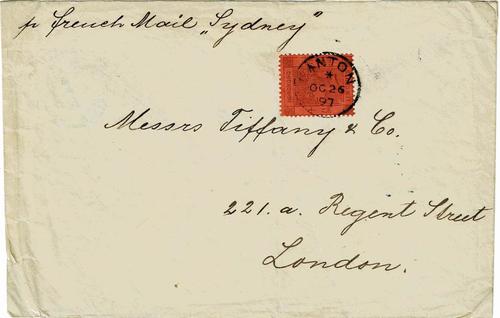 p French Mail „Sydney"
CANTON
*
OC 26
97
Messrs Tiffany & Co.
221. a. Regent Street
London.